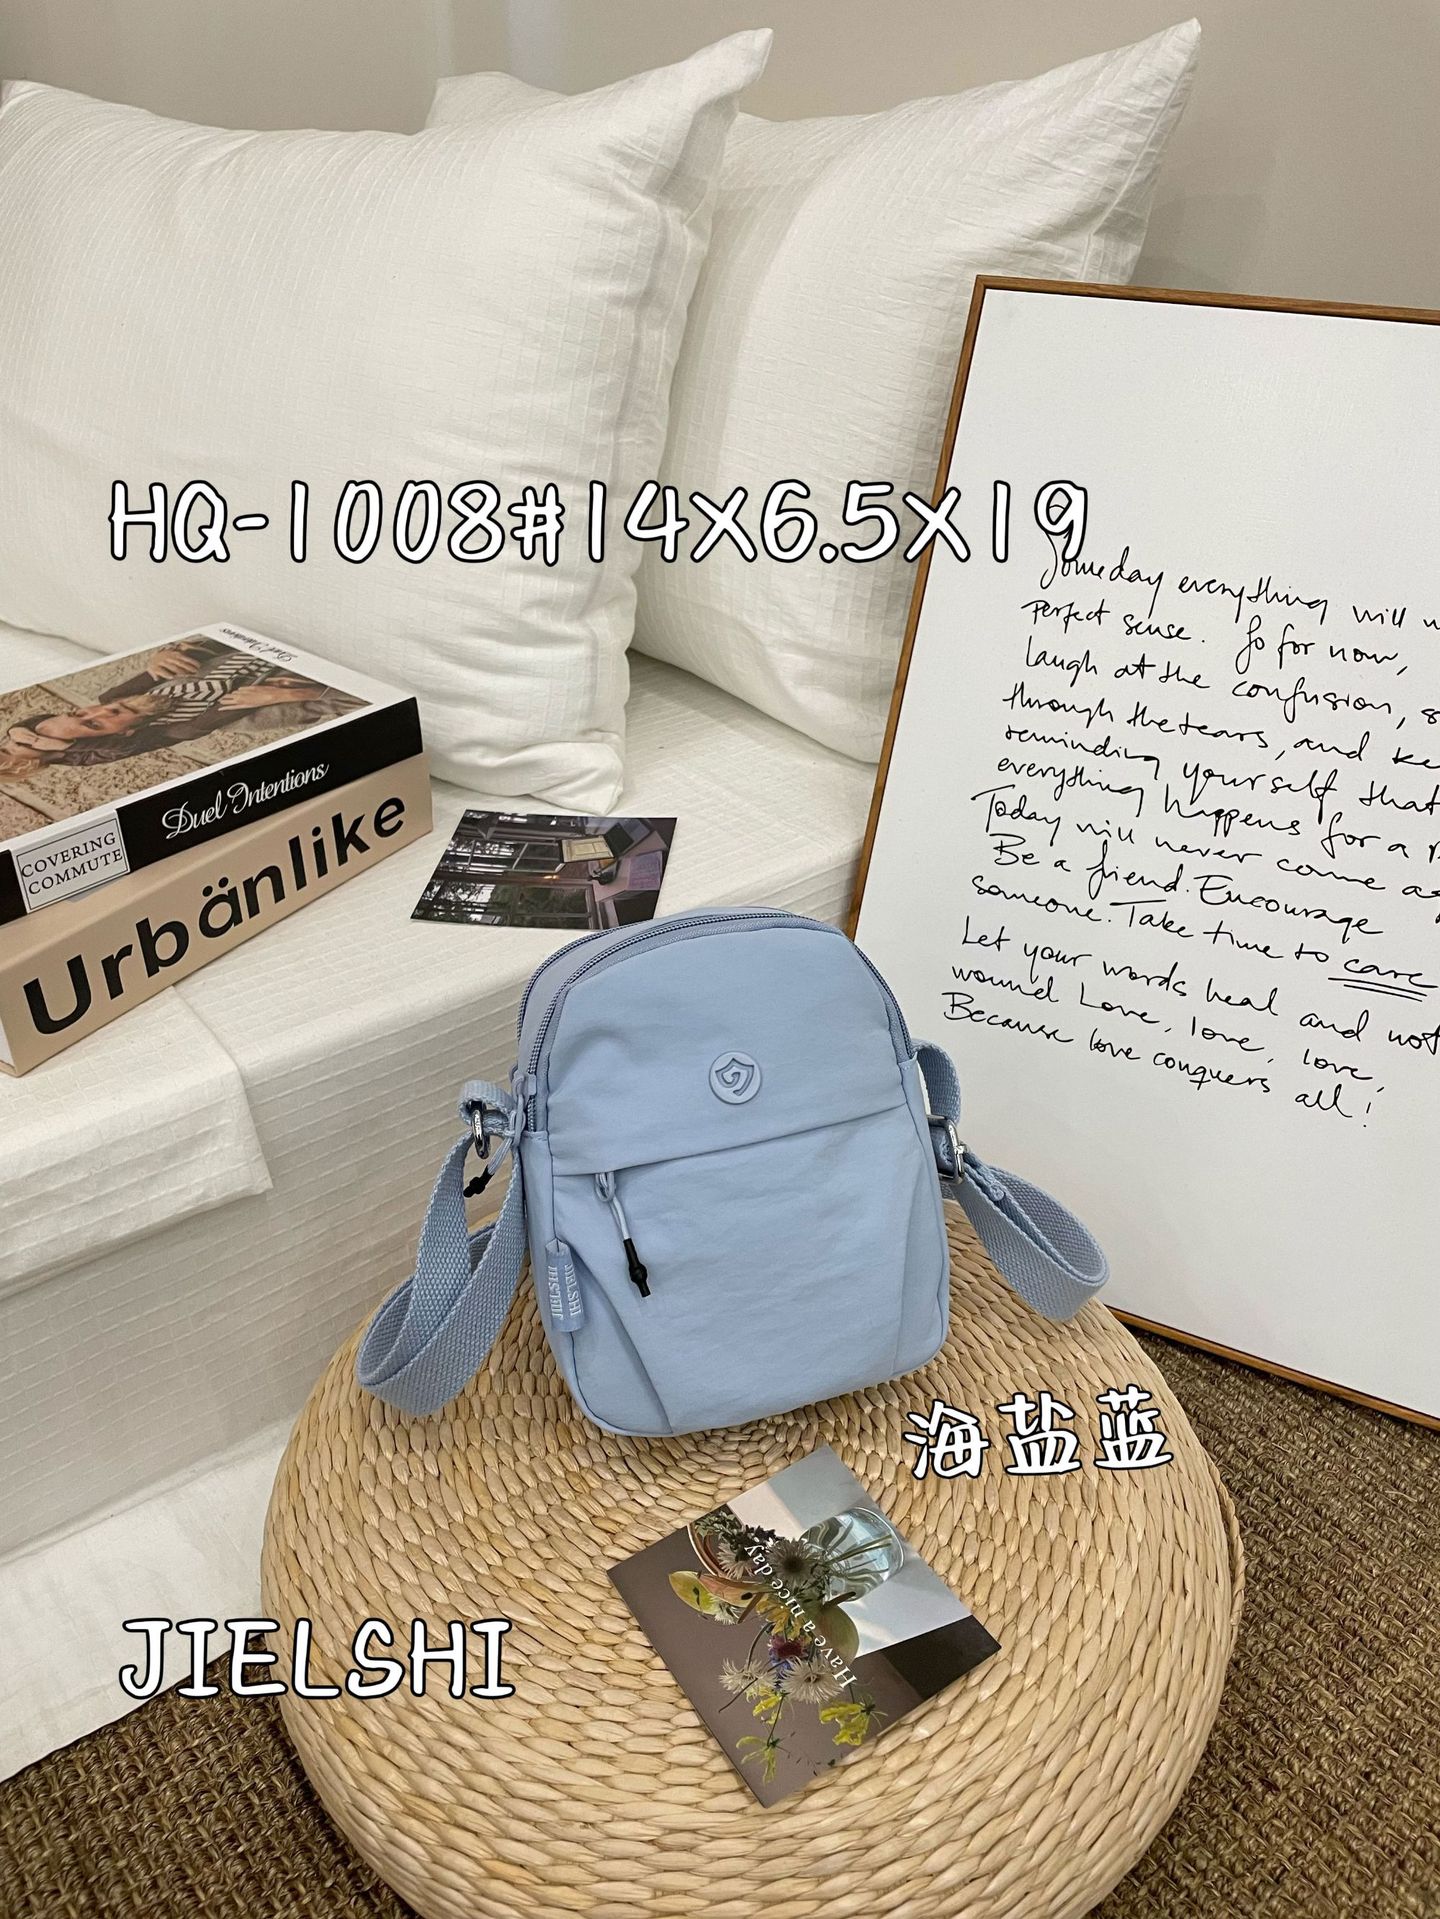 HQ-1008#14X6.5X19
Duel Intentions
COVERING
COMMUTE
Urbänlike
Someday everything will
perfect sense. So for now,
laugh at the confusion,
through the tears, and
reminding yourself that
everything happens for a
Today will never come
Be a friend. Encourage
someone. Take time to care
Let your words heal and not
wound Love, love, love,
Because love conquers all!
JIELSHI
JIELSHI
海盐蓝
Have a nice day.
JIELSHI